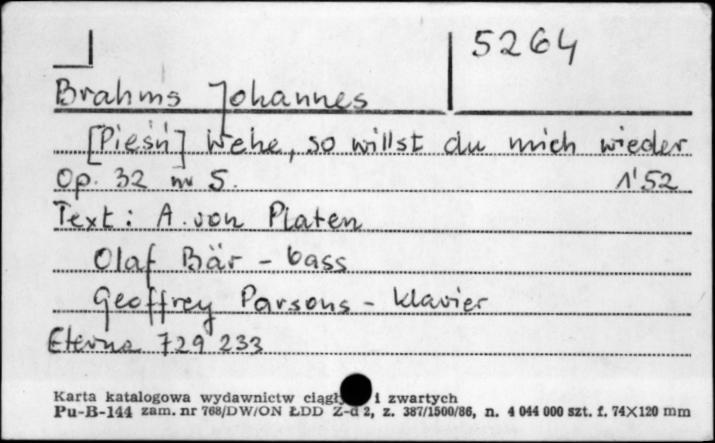 5264
Brahms Johannes
[Pieśń] Wehe, so willst du mich wieder
Op. 32 nr 5. 1'52
Text: A. von Platen
Olaf Bär - bass
Geoffrey Parsons - klavier
Eterna 729 233
Karta katalogowa wydawnictw i zwartych
Pu-B-144 zam. nr 768/DW/ON ŁDD Z-d 2, z. 387/1500/86, n. 4 044 000 szt. f. 74×120 mm